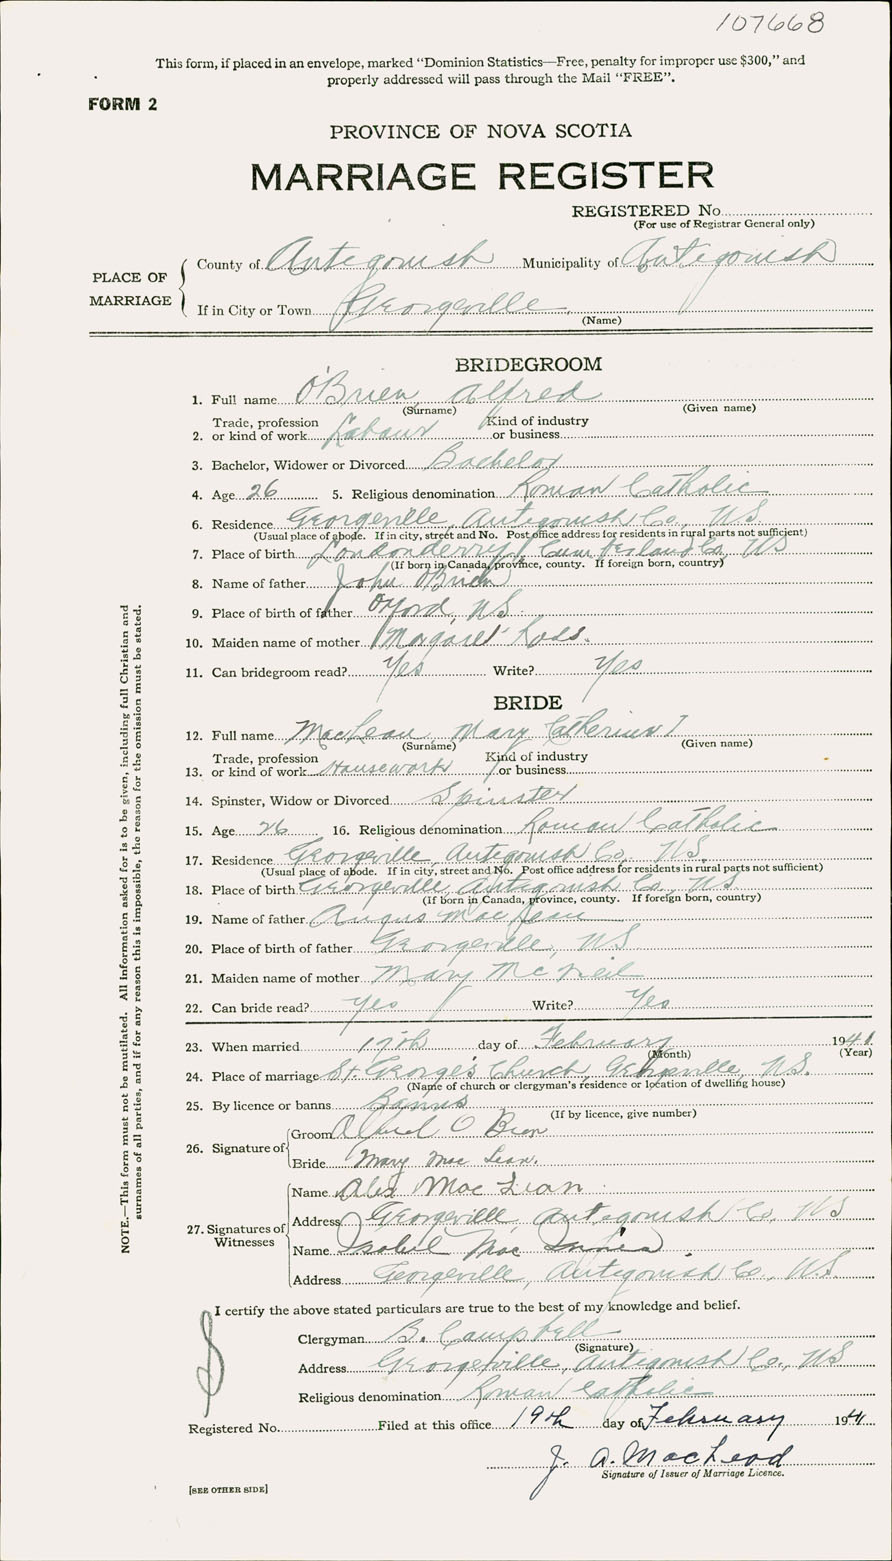 107668
This form, if placed in an envelope, marked "Dominion Statistics—Free, penalty for improper use $300," and
properly addressed will pass through the Mail "FREE".
FORM 2
PROVINCE OF NOVA SCOTIA
MARRIAGE REGISTER
REGISTERED No.
(For use of Registrar General only)
PLACE OF MARRIAGE
County of Antigonish Municipality of Antigonish
If in City or Town Georgeville
(Name)
BRIDEGROOM
1. Full name O'Brien, Alfred
(Surname) (Given name)
2. Trade, profession or kind of work Labour Kind of industry or business
3. Bachelor, Widower or Divorced Bachelor
4. Age 26 5. Religious denomination Roman Catholic
6. Residence Georgeville, Antigonish Co., NS.
(Usual place of abode. If in city, street and No. Post office address for residents in rural parts not sufficient)
7. Place of birth Londonderry, Cumberland Co., NS
(If born in Canada, province, county. If foreign born, country)
8. Name of father John O'Brien
9. Place of birth of father Oxford, NS.
10. Maiden name of mother Margaret Ross.
11. Can bridegroom read? Yes Write? Yes
BRIDE
12. Full name MacLean, Mary Catherine
(Surname) (Given name)
13. Trade, profession or kind of work Housework Kind of industry or business
14. Spinster, Widow or Divorced Spinster
15. Age 26 16. Religious denomination Roman Catholic
17. Residence Georgeville, Antigonish Co., NS.
(Usual place of abode. If in city, street and No. Post office address for residents in rural parts not sufficient)
18. Place of birth Georgeville, Antigonish Co., NS.
(If born in Canada, province, county. If foreign born, country)
19. Name of father Angus MacLean
20. Place of birth of father Georgeville, NS
21. Maiden name of mother Mary McNeil
22. Can bride read? Yes Write? Yes
23. When married 17th day of February 1941
(Month) (Year)
24. Place of marriage St. George's Church, Georgeville, NS.
(Name of church or clergyman's residence or location of dwelling house)
25. By licence or banns Banns
(If by licence, give number)
26. Signature of
Groom Alfred O Brien
Bride Mary Mac Lean.
27. Signatures of Witnesses
Name Alex Mac Lean
Address Georgeville, Antigonish Co., NS
Name Isabel Mac Innis
Address Georgeville, Antigonish Co., NS.
I certify the above stated particulars are true to the best of my knowledge and belief.
Clergyman B. Campbell
(Signature)
Address Georgeville, Antigonish Co., NS
Religious denomination Roman Catholic
Registered No. Filed at this office 19th day of February 1941
J. A. MacLeod
Signature of Issuer of Marriage Licence.
[SEE OTHER SIDE]
NOTE.—This form must not be mutilated. All information asked for is to be given, including full Christian and
surnames of all parties, and if for any reason this is impossible, the reason for the omission must be stated.